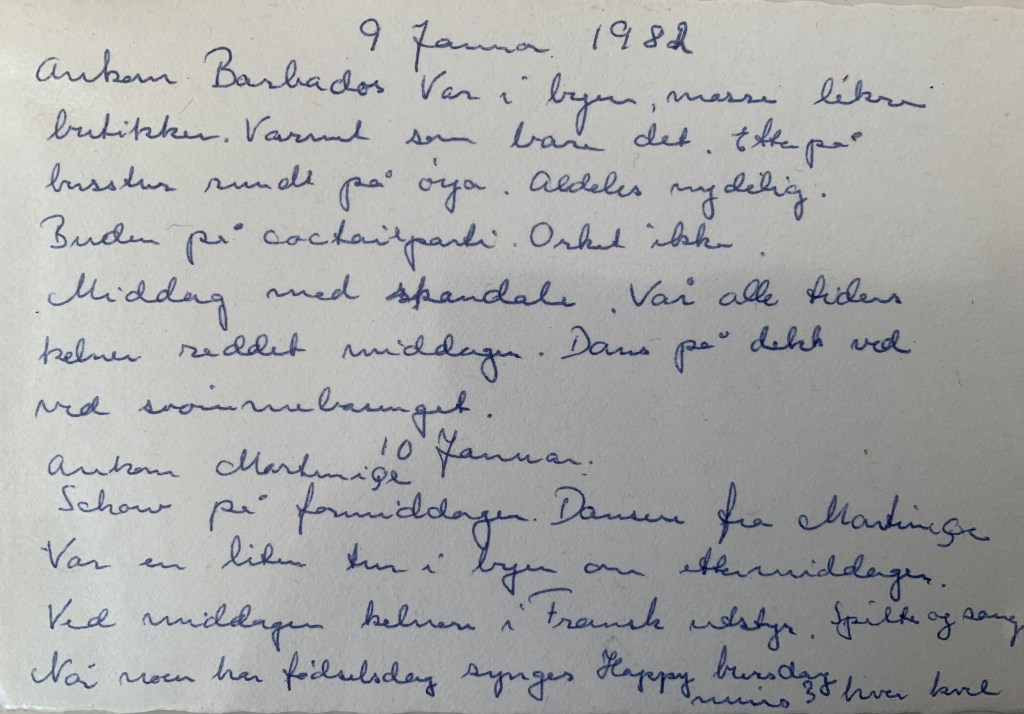 9 Januar 1982
Ankom Barbados Var i byen, masse lekre
butikker. Varmt som bare det. Etterpå
busstur rundt på øya. Aldeles nydelig.
Buden på coctailparti. Orket ikke.
Middag med skandale. Vår alle tiders
kelner reddet middagen. Dans på dekk ved
ved svømmebasenget.
10 Januar.
Ankom Martiniqe
Schow på formiddagen. Dansere fra Martiniqe
Var en liten tur i byen om ettermiddagen.
Ved middagen kelnere i Fransk utstyr. Spilte og sang
Når noen har fødselsdag synges Happy bursday
mins 3 hver kvel